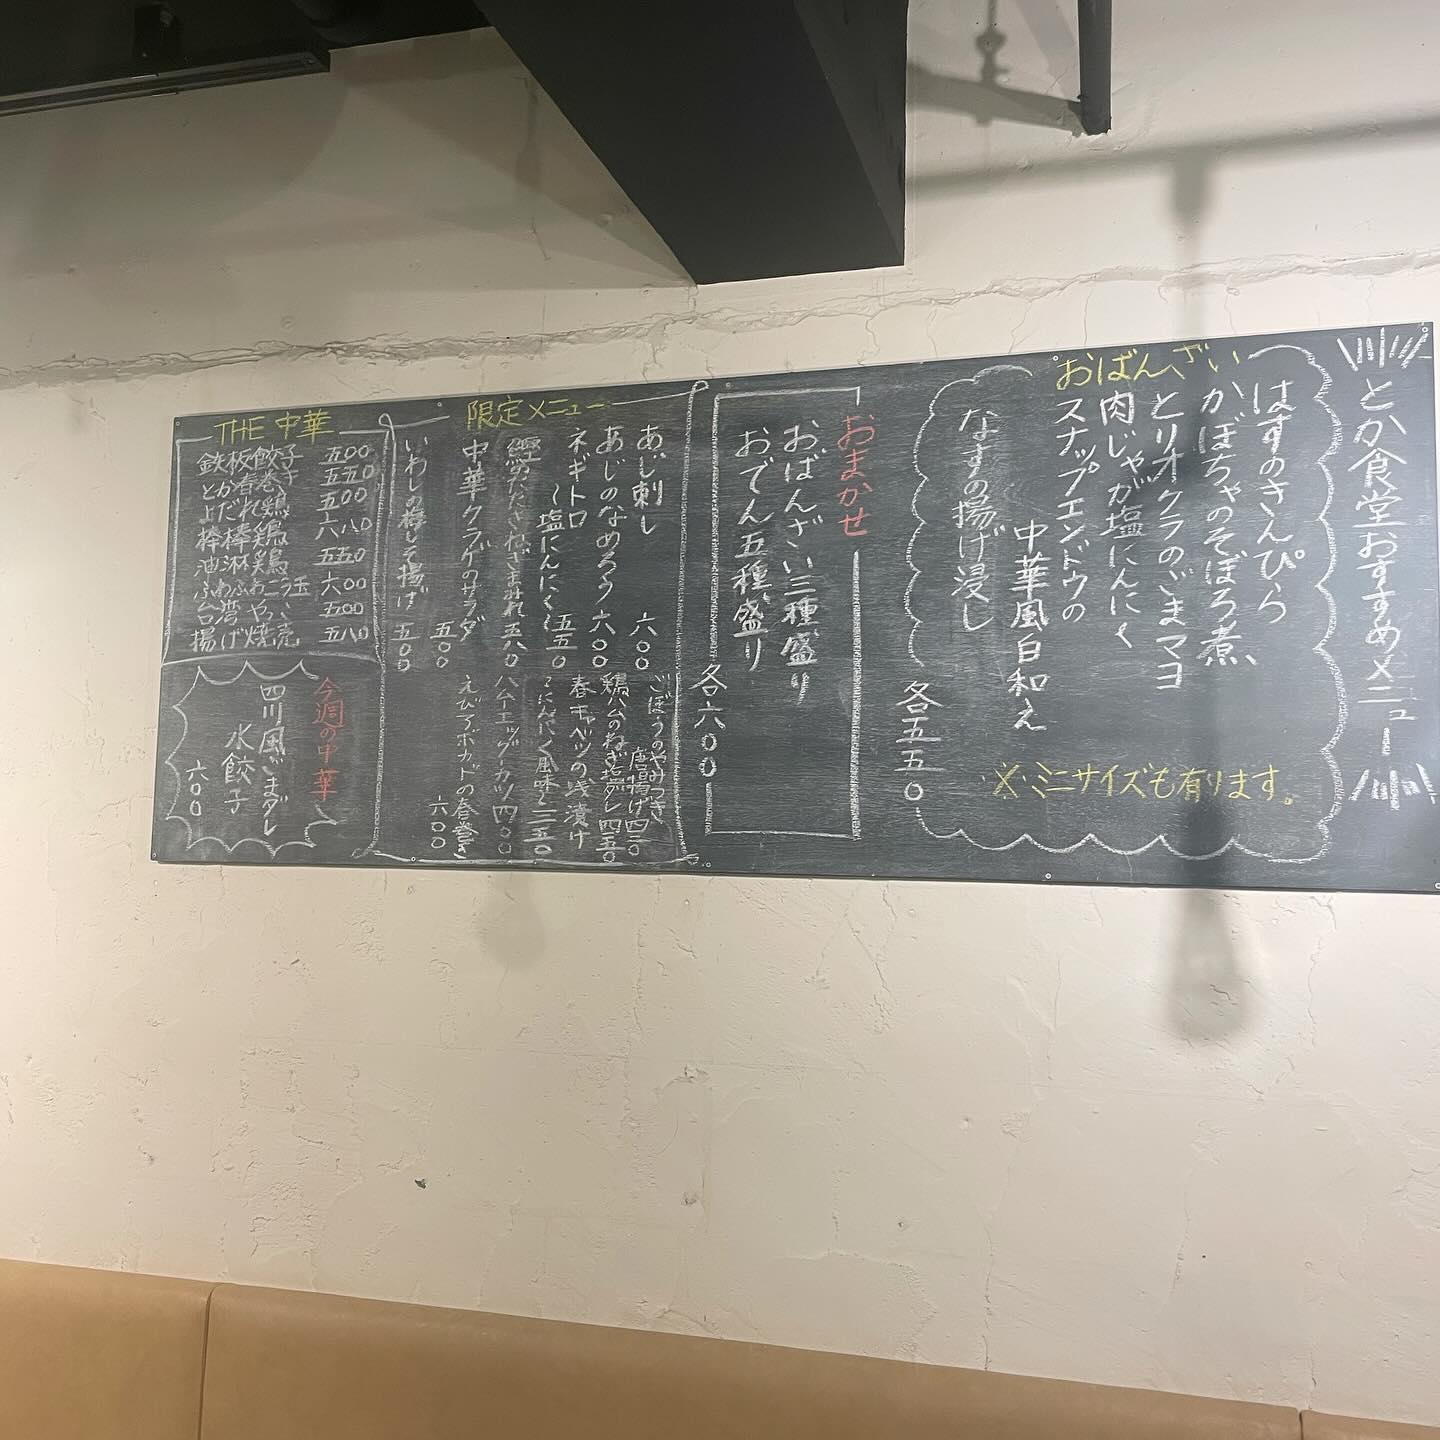 とか食堂おすすめメニュー
おばんざい
はすのきんぴら
かぼちゃのそぼろ煮
とりオクラのごまマヨ
肉じゃが塩にんにく
スナップエンドウの
中華風白和え
なすの揚げ浸し
各五五〇
※ミニサイズも有ります。
おまかせ
おばんざい三種盛り
おでん五種盛り
各六〇〇
限定メニュー
あじ刺し 六〇〇
あじのなめろう 六〇〇
ネギトロ
〜塩にんにく〜 五五〇
五八〇
中華クラゲのサラダ 五〇〇
いわしの梅しそ揚げ 五〇〇
ごぼうのやみつき
唐揚げ
鶏ハムのねぎ塩ダレ 四五〇
春キャベツの浅漬け
〜にんにく風味〜 三五〇
ハムエッグカツ 四〇〇
えびアボカドの春巻き
六〇〇
THE 中華
鉄板餃子 五〇〇
五五〇
よだれ鶏 五〇〇
棒棒鶏 六八〇
油淋鶏 五五〇
六〇〇
五〇〇
揚げ焼売 五八〇
今週の中華
四川風ごまダレ
水餃子
六〇〇